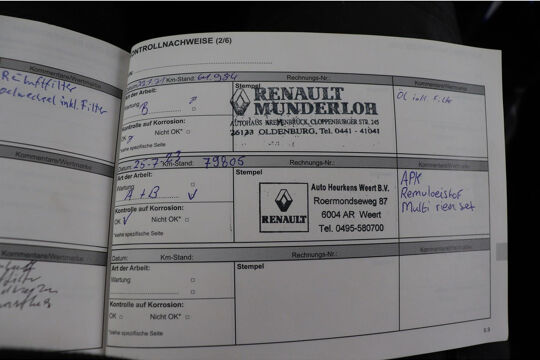 Kommentare/Wertmarke
Reinluftfilter
inkl. Filter
Kommentare/Wertmarke
Kommentare/Wertmarke
KONTROLLNACHWEISE (2/6)
Datum: Km-Stand: Rechnungs-Nr.: Kommentare/Wertmarke
Art der Arbeit: Stempel
Wartung B
Kontrolle auf Korrosion:
OK Nicht OK* □
*siehe spezifische Seite
RENAULT
MUNDERLOH
AUTOHAUS KREYENBRÜCK, CLOPPENBURGER STR. 245
26133 OLDENBURG, Tel. 0441 - 41041
Öl inkl. Filter
Datum: 25-7-23 Km-Stand: 79805 Rechnungs-Nr.: Kommentare/Wertmarke
Art der Arbeit: Stempel
Wartung A+B
Kontrolle auf Korrosion:
OK Nicht OK* □
*siehe spezifische Seite
RENAULT
Auto Heurkens Weert B.V.
Roermondseweg 87
6004 AR Weert
Tel. 0495-580700
APK
Remvloeistof
Multi riem set
Datum: Km-Stand: Rechnungs-Nr.: Kommentare/Wertmarke
Art der Arbeit: Stempel
Wartung □
□
Kontrolle auf Korrosion:
OK □ Nicht OK* □
*siehe spezifische Seite